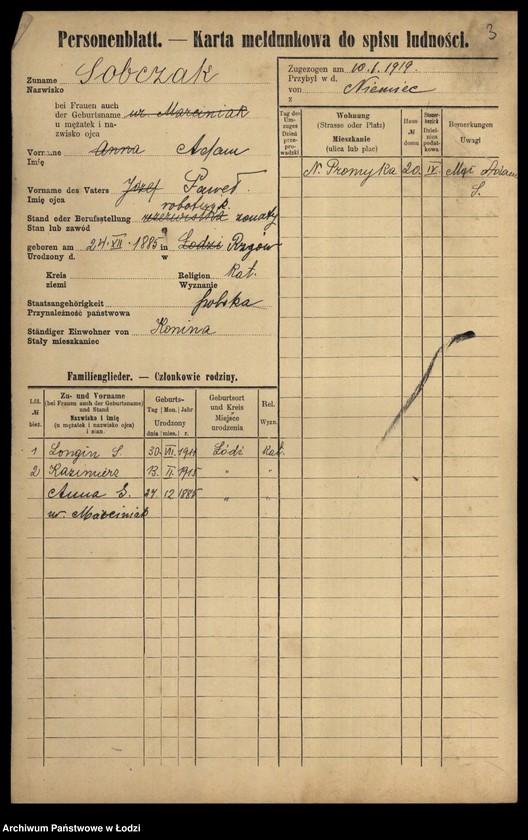 3
Personenblatt. — Karta meldunkowa do spisu ludności.
Zuname Sobczak
Nazwisko
bei Frauen auch
der Geburtsname ur. Marciniak
u mężatek i na-
zwisko ojca
Vorname Anna Adam
Imię
Vorname des Vaters Józef Paweł
Imię ojca
robotnik.
Stand oder Berufsstellung żonaty
Stan lub zawód
geboren am 24. XII. 1885 in Łodzi Rzgów
Urodzony d. w
Kreis Religion Kat.
ziemi Wyznanie
Staatsangehörigkeit polska
Przynależność państwowa
Ständiger Einwohner von Konina
Stały mieszkaniec
Zugezogen am 10. I. 1919.
Przybył w d.
von Niemiec
z
Tag des Um-zuges Dzień prze-prowadzki
Wohnung (Strasse oder Platz) Mieszkanie (ulica lub plac)
Haus № domu
Steuer-bezirk Dziel-nica podat-kowa
Bemerkungen Uwagi
N. Promyka 20. IV. Mąż Adam
S.
Familienglieder. — Członkowie rodziny.
Lfd. № bież.
Zu- und Vorname (bei Frauen auch der Geburtsname) und Stand Nazwisko i imię (u mężatek i nazwisko ojca) i stan.
Geburts- Tag Mon. Jahr Urodzony dnia mies. r.
Geburtsort und Kreis Miejsce urodzenia
Rel. Wyzn.
1 Longin S. 30. VII. 1911 Łódź Kat.
2 Kazimiera 13. II. 1915 " "
Anna S. 27 12 1885 " "
ur. Marciniak
Archiwum Państwowe w Łodzi